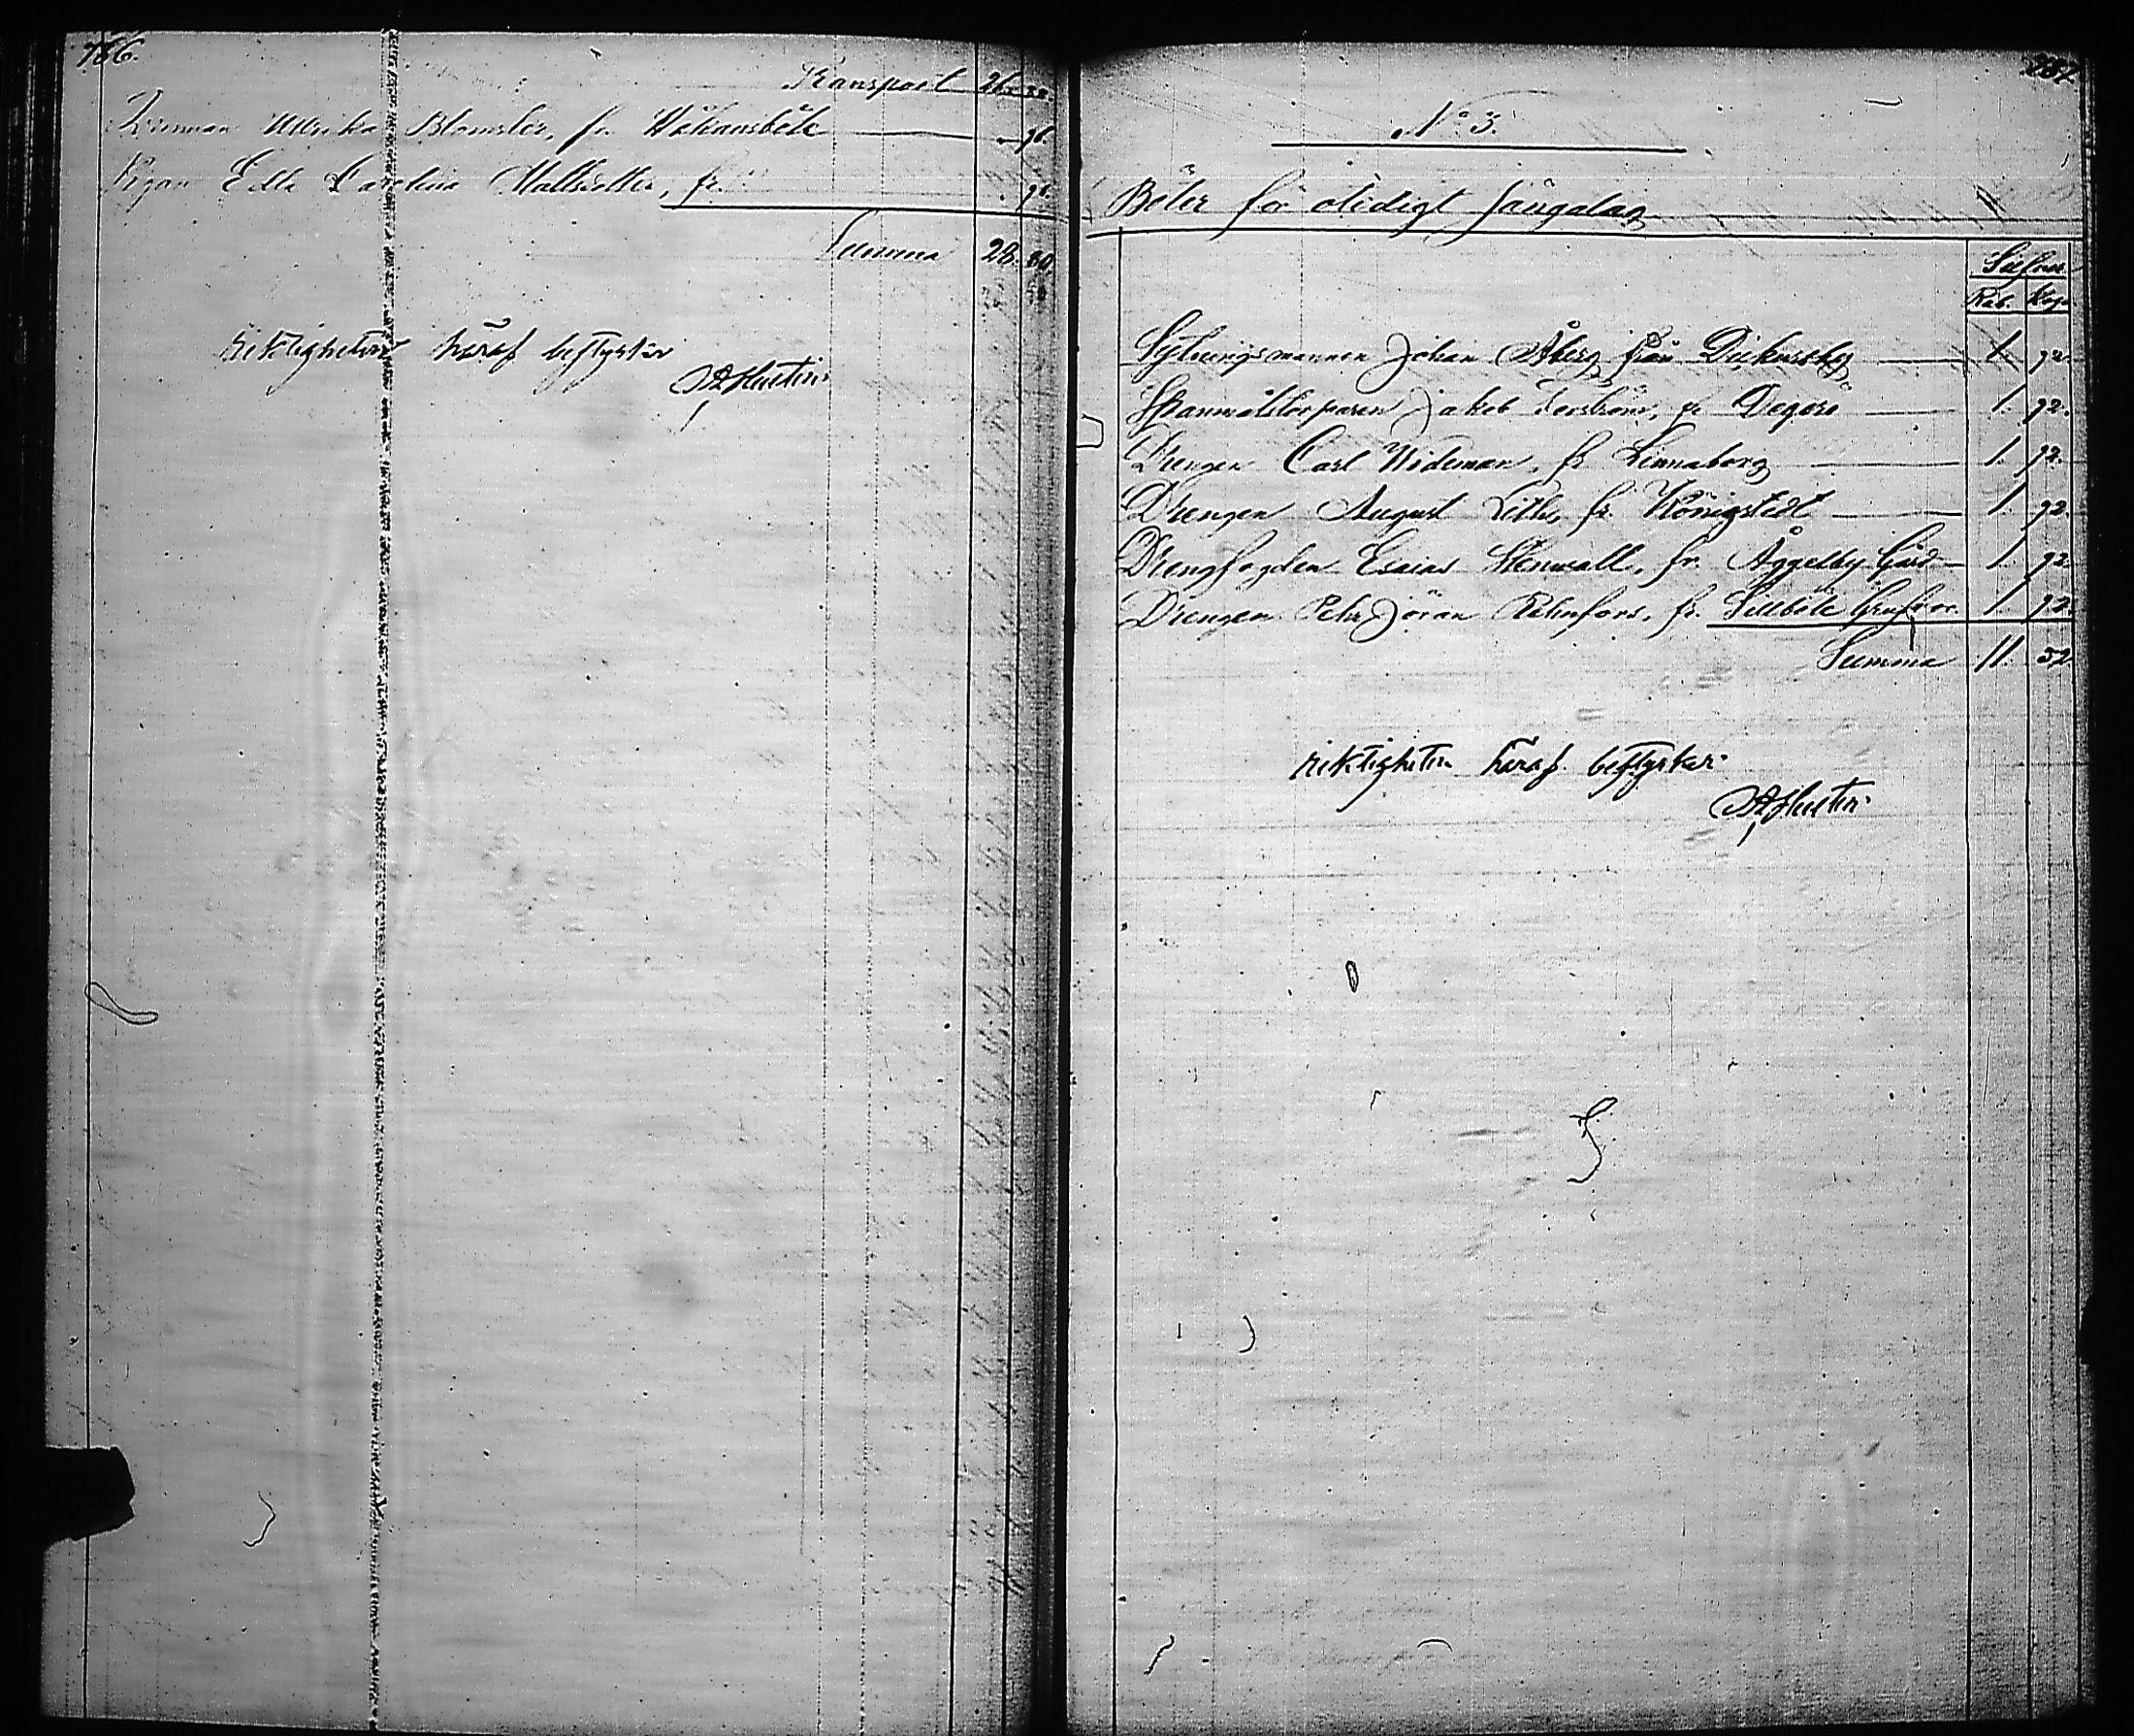 166.
Transport 26. 88.
Qvinnan Ullrika Blomster, fr. Håkansböle — " 96.
Pigan Edla Carolina Hallsetter, fr. " 96.
Summa 28. 80.
Riktigheten häraf bestyrker
A Hustin
167.
No 3.
Böter för otidigt sängalag
Silfver
Rub. Kop.
Sytningsmannen Johan Åberg från Dickursby — 1. 92.
Spannmålstorparen Jakob Forsström, fr Degerö — 1. 92.
Drengen Carl Wideman, fr Linnaberg — 1. 92.
Drengen August Lith, fr. Königstedt — 1. 92.
Drengfogden Esaias Stenwall, fr. Åggelby Gård — 1. 92
Drengen Petr Jöran Rehnfors, fr. Sillböle Grufvor. 1. 92.
Summa 11. 52.
Riktigheten häraf bestyrker
A Hustin